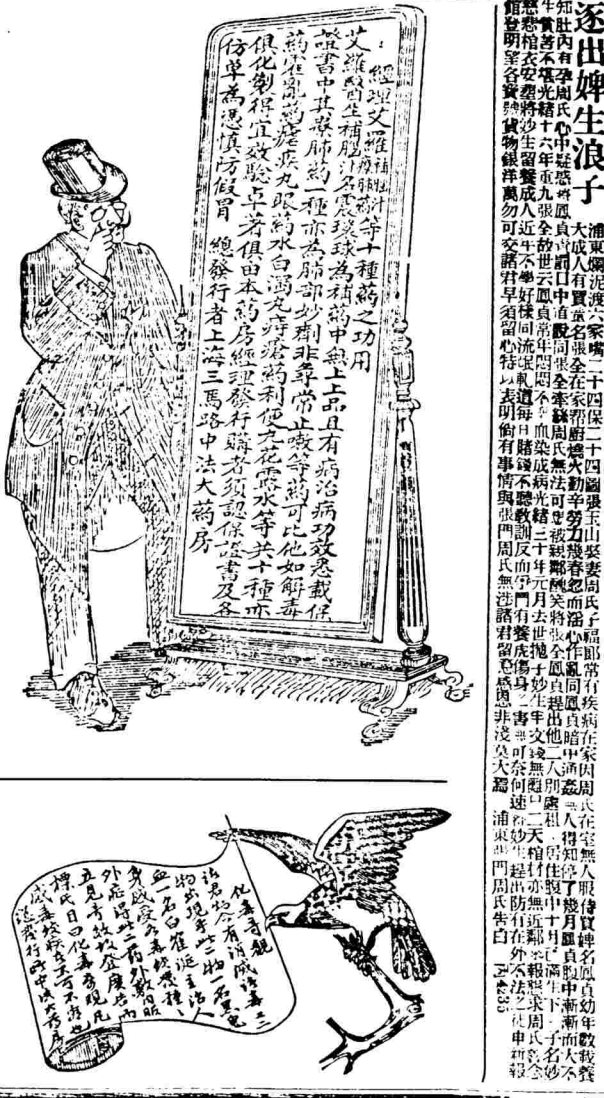 逐出婢生浪子
浦東爛泥渡六家嘴二十四保二十四圖張玉山娶妻周氏子福郎常有疾病在家因周氏在室無人服侍買婢名鳳貞幼年數載養
大成人有買童名張全在家帮廚燒火勤辛勞力幾春忽而淫心作亂同鳳貞暗中通姦無人得知停了幾月鳳貞腹中漸漸而大不
知肚內有孕周氏心中疑惑將鳳貞責罰口中直說同張全牽絲周氏無法可處被親鄰醜笑將張全鳳貞趕出他二人別處租居住腹中十月已滿生下一子名妙
生貧苦不堪光緒十六年重九張全故世云鳳貞常年悶悶不血染成病光緒三十年元月去世拋子妙生年幼無二天棺材亦無近鄰來報懇求周氏
慈悲棺衣安塟將妙生留養成人近年不學好樣同流氓軋道每日賭錢不聽教訓反而門有養虎傷身之害無可奈何速將妙生趕出防有在外不法之徒申新報
館登明望各寶號貨物銀洋萬勿可交諸君早須留心特以表明倘有事情與張門周氏無涉諸君留意感恩非淺莫大焉 浦東張門周氏告白
經理艾羅補腦汁療肺藥等十種藥之功用
艾羅醫生補腦汁名震環球為補藥中無上上品且有病治病功效悉載保
證書中其療肺藥一種亦為肺部妙劑非尋常止嗽等藥可比他如解毒
藥霍亂藥瘧疾丸眼藥水白濁丸痔瘡藥利便丸花露水等共十種亦
俱化製得宜效驗卓著俱由本藥房經理發行購者須認保證書及各
仿單為憑慎防假冒 總發行者上海三馬路中法大藥房
化毒奇觀
諸君知今有消滅諸毒之二
物出現乎此二物一名黑鬼
血一名白雀涎主治人
身感受各毒
外症將此二藥外敷內服
五見奇效
標氏日日化毒奇現凡